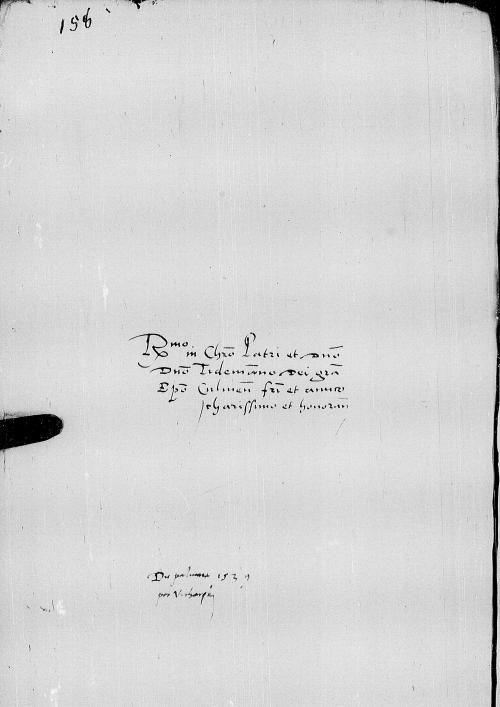 158
Rmo in Chro Patri et dno
dno Tidemano Dei gra
Epo Culmen fri et amico
charissimo et honoran
Die palmar 1539
per